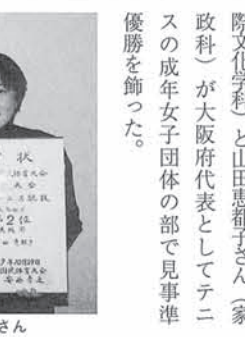 際文化学科）と山田恵都子さん（家
政科）が大阪府代表としてテニ
スの成年女子団体の部で見事準
優勝を飾った。
状
第2位
さん